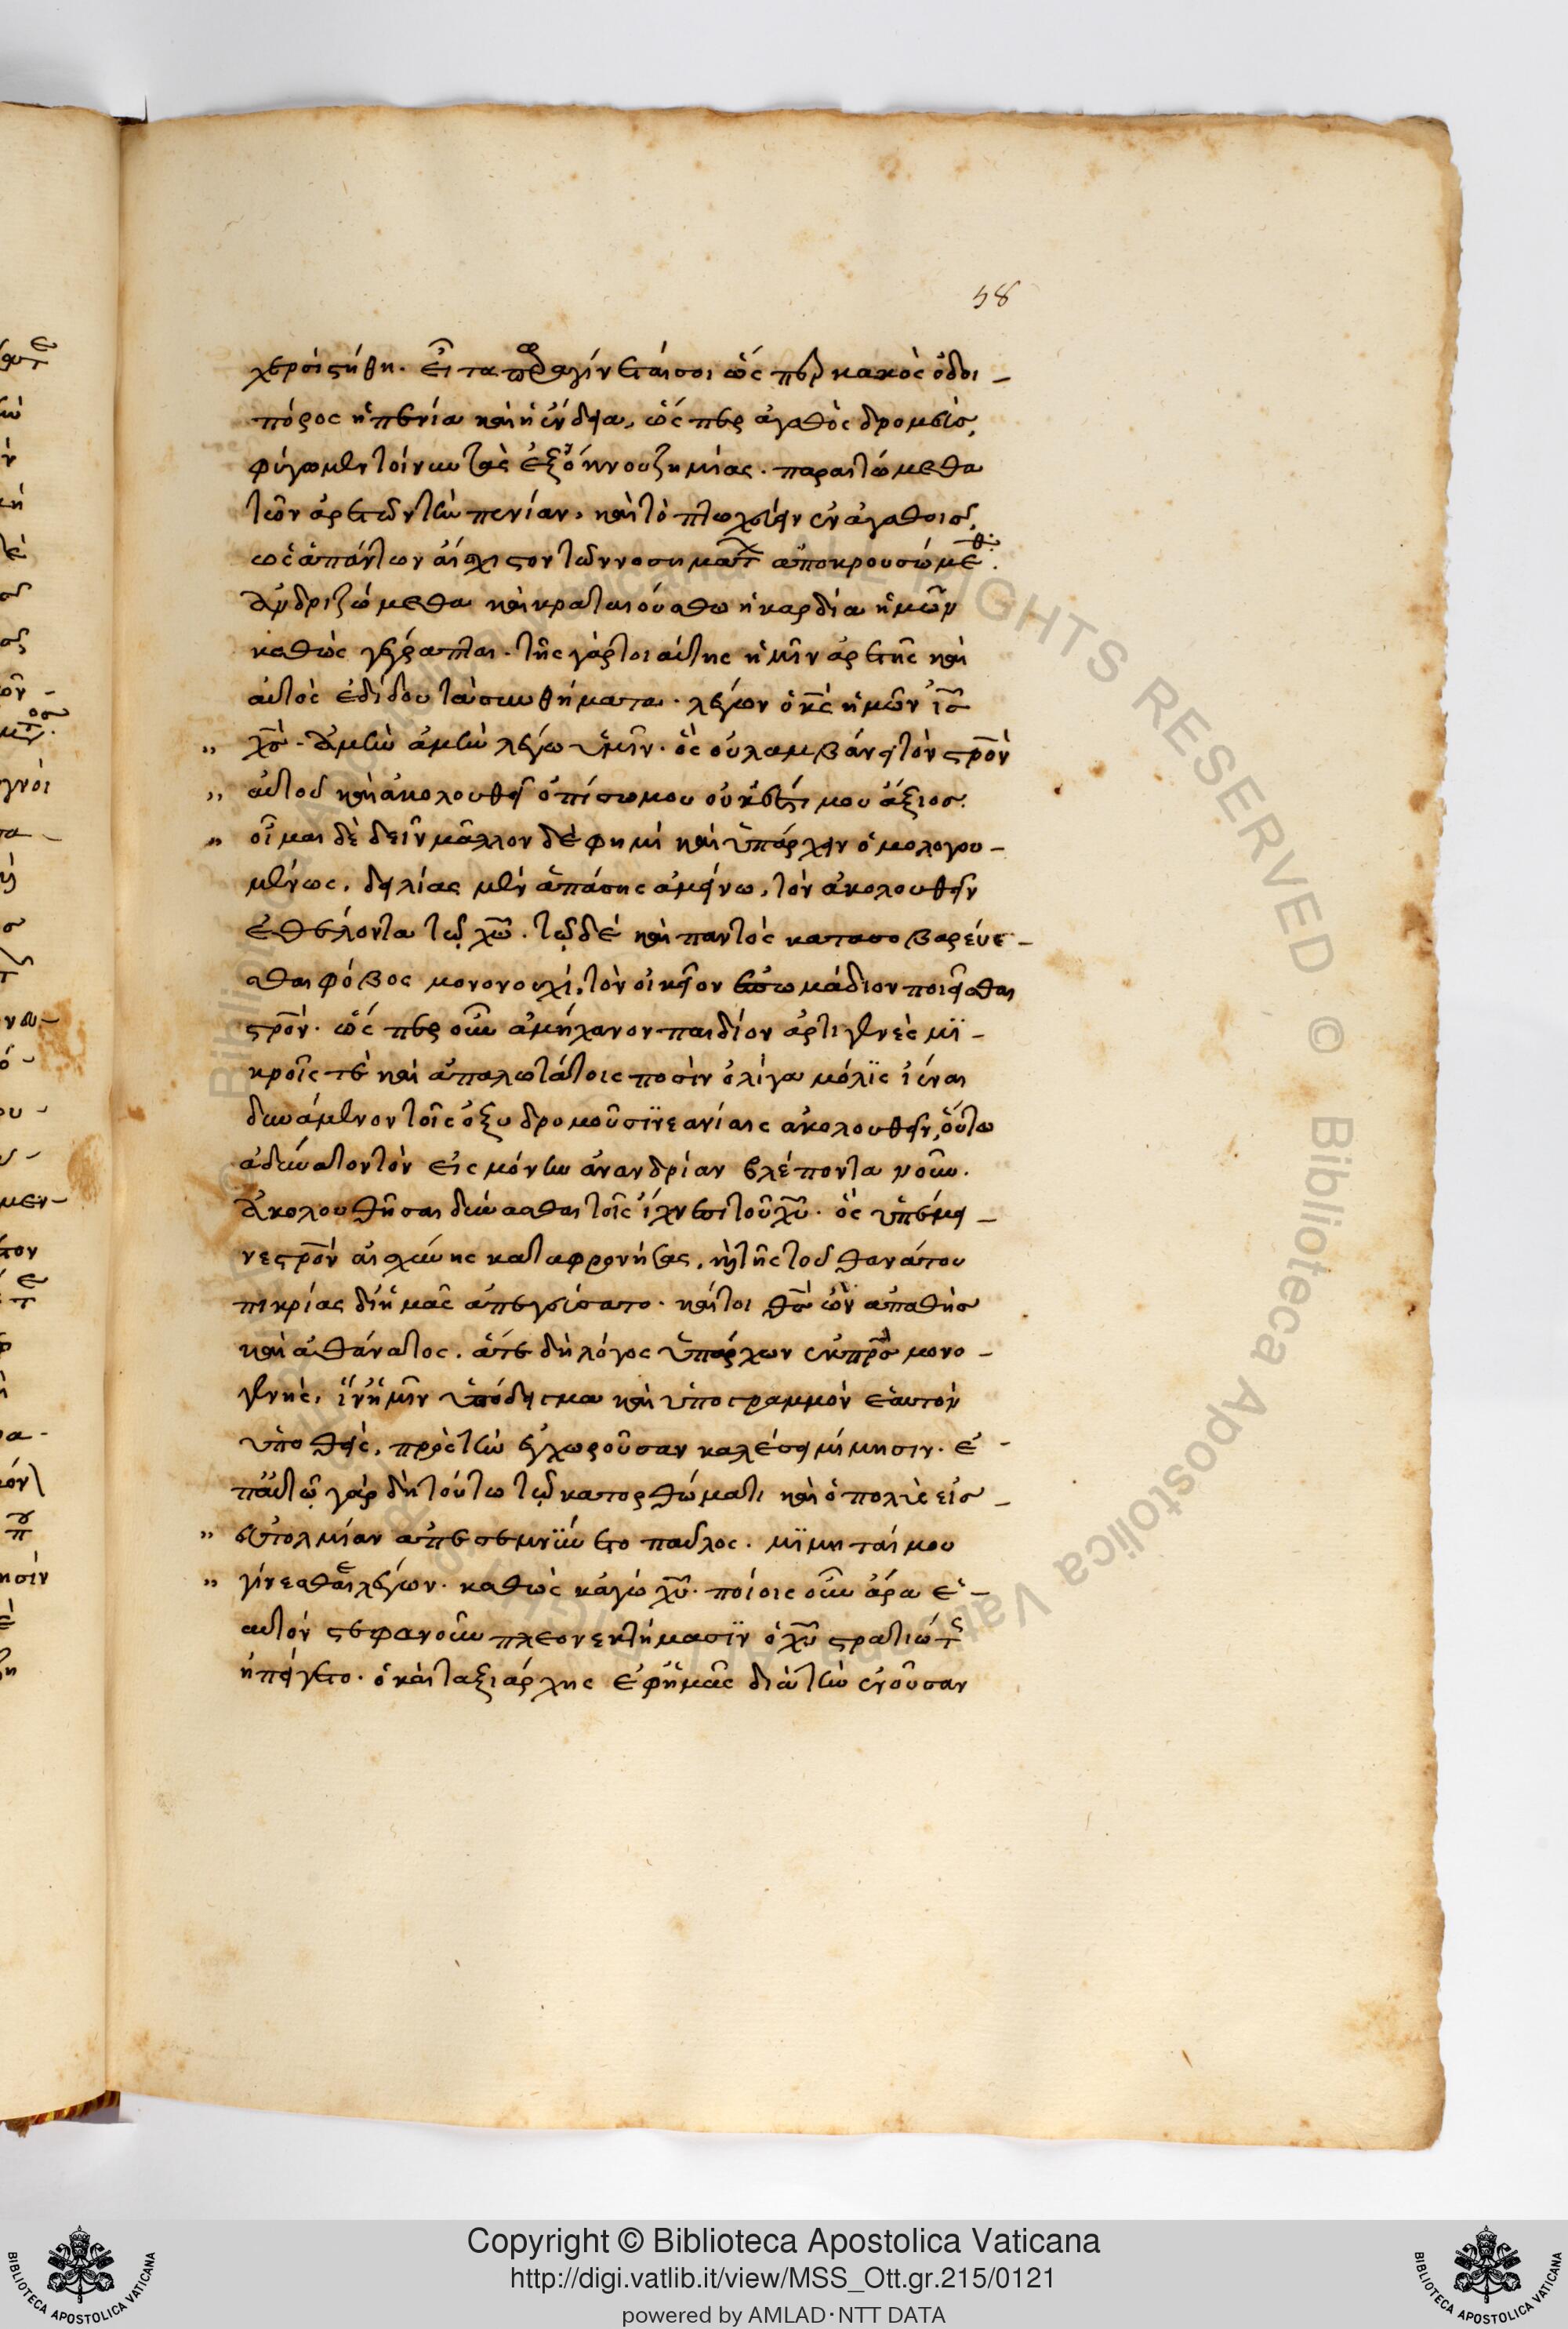 58
χερσὶ στήθη. εἶτα παραγίνεταί σοι ὥσπερ κακὸς ὁδοι –
πόρος ἡ πενία καὶ ἡ ἔνδεια, ὥσπερ ἀγαθὸς δρομεύς,
φύγωμεν τοίνυν τὰς ἐξ ὄκνου ζημίας. παραιτώμεθα
τῶν ἀρετῶν τὴν πενίαν, καὶ τὸ πτωχεύειν ἐν ἀγαθοῖς,
ὡς ἁπάντων αἴσχιστον τῶν νοσημάτ ἀποκρουσώμεθ.
Ἀνδριζώμεθα καὶ κραταιούσθω ἡ καρδία ἡμῶν
καθὼς γέγραπται. τῆς γάρ τοιαύτης ἡμῖν ἀρετῆς καὶ
αὐτὸς ἐδίδου τὰ συνθήματα. λέγων ὁ κς ἡμῶν ις
„ χς. Ἀμὴν ἀμὴν λέγω ὑμῖν. ὃς οὐ λαμβάνει τὸν στρον
„ αὐτοῦ καὶ ἀκολουθεῖ ὀπίσω μου οὐκ ἔστι μου ἄξιος.
„ οἶμαι δὲ δεῖν μᾶλλον δέ φημι καὶ ὑπάρχειν ὁμολογου –
μένως, δειλίας μὲν ἁπάσης ἀμείνω, τὸν ἀκολουθεῖν
ἐθέλοντα τῷ χω. τῷ δὲ καὶ παντὸς κατασοβαρεύε –
σθαι φόβος μονονουχί, τὸν οἰκεῖον ἐπωμάδιον ποιεῖσθαι
στρον. ὥσπερ οὖν ἀμήχανον παιδίον ἀρτιγενὲς μϊ –
κροῖς τε καὶ ἁπαλωτάτοις ποσὶν ὀλίγα μόλϊς ἰέναι
δυνάμενον τοῖς ὀξυδρομοῦσϊ νεανίαις ἀκολουθεῖν, οὕτω
ἀδύνατον τὸν εἰς μόνην ἀνανδρίαν βλέποντα νοῦν.
Ἀκολουθῆσαι δύνασθαι τοῖς ἴχνεσι τοῦ χυ. ὃς ὑπέμει –
νε στρον αἰσχύνης καταφρονήσας, καὶ τῆς τοῦ θανάτου
πικρίας δι' ἡμᾶς ἀπεγεύσατο. καίτοι θς ὢν ἀπαθὴς
καὶ ἀθάνατος. ἅτε δὴ λόγος ὑπάρχων ἐκ πρς μονο –
γενής, ἵν' ἡμῖν ὑπόδειγμα καὶ ὑπογραμμὸν ἑαυτὸν
ὑποθείς, πρὸς τὴν ἐγχωροῦσαν καλέσῃ μίμησιν. ἐ –
π' αὐτῷ γὰρ δὴ τούτω τῷ κατορθώματι καὶ ὁ πολὺς εἰς –
„ εὐτολμίαν ἀπεσεμνϋνετο παῦλος. μϊμηταί μου
„ γίνεσθαι λέγων. καθὼς κἀγὼ χυ. ποίοις οὖν ἄρα ἑ –
αυτόν στεφανοῦν πλεονεκτήμασϊν ὁ χυ στρατιώτ
ἠπείγετο. ὁ καὶ ταξιάρχης ἐφ' ἡμᾶς διὰ τὴν ἐνοῦσαν
Copyright © Biblioteca Apostolica Vaticana
http://digi.vatlib.it/view/MSS_Ott.gr.215/0121
powered by AMLAD·NTT DATA
BIBLIOTECA APOSTOLICA VATICANA
BIBLIOTECA APOSTOLICA VATICANA